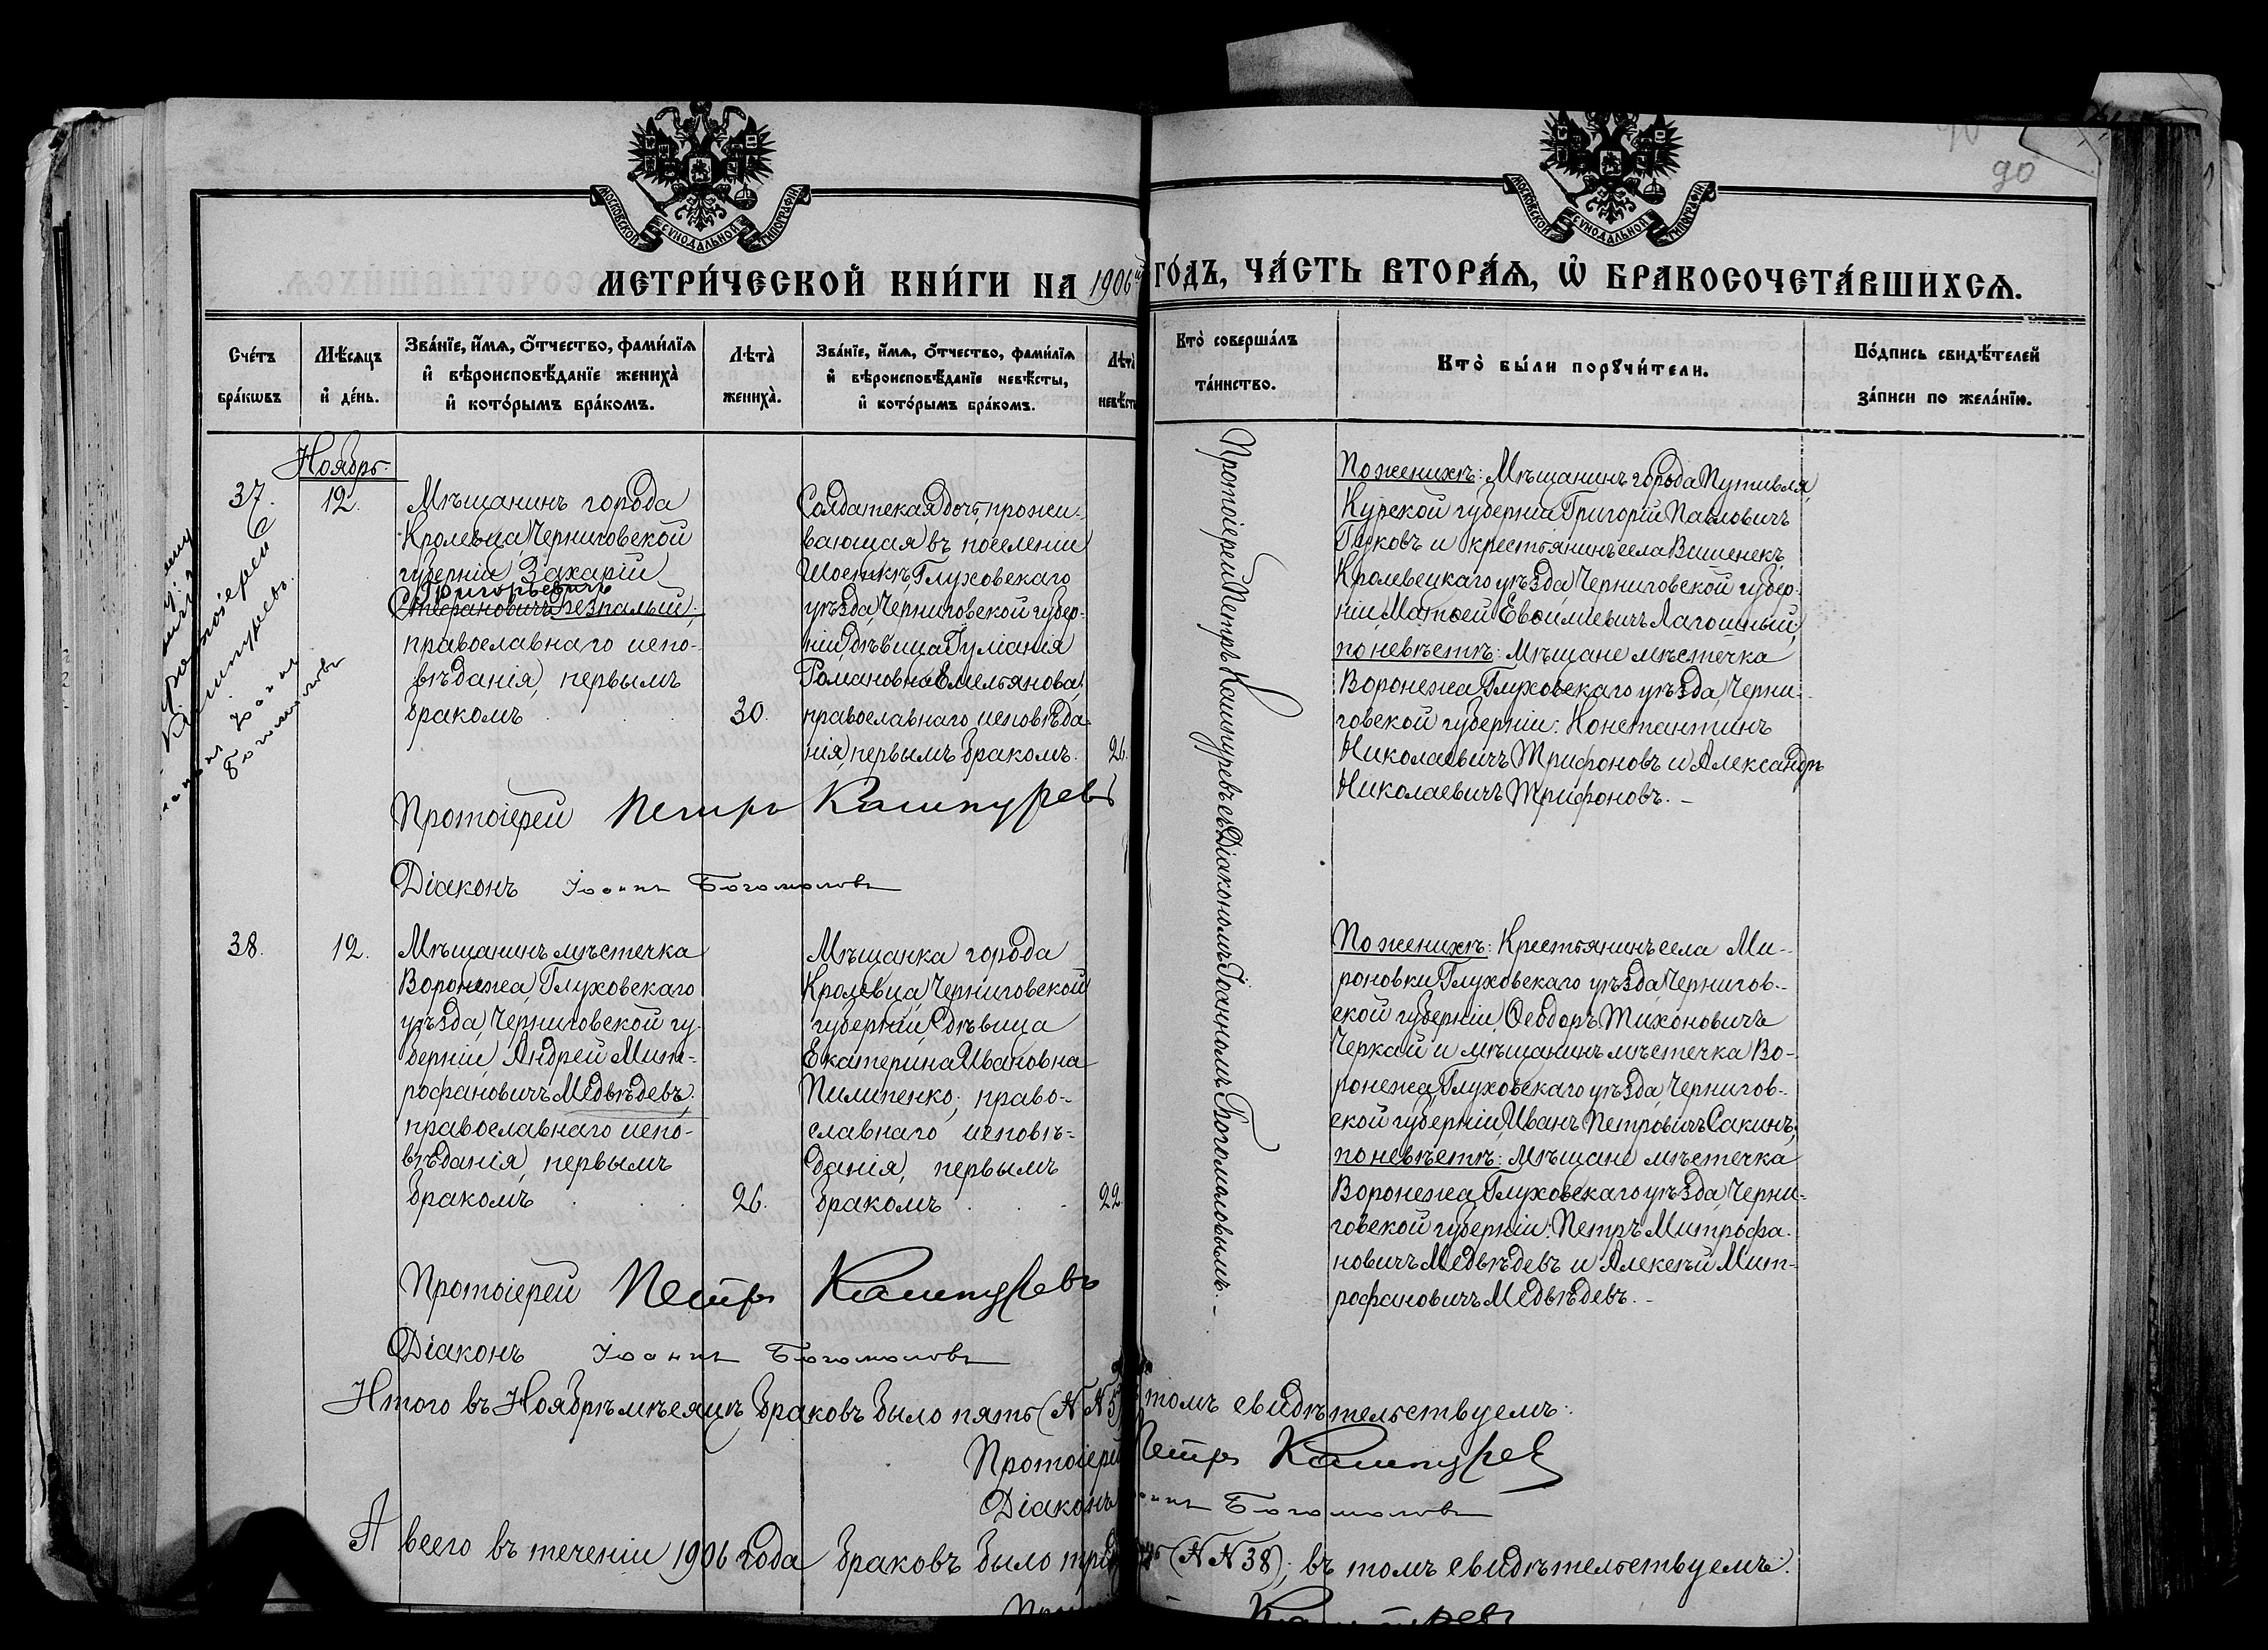 МОСКОВСКОЙ СѴНОДАЛЬНОЙ ТИПОГРАФІИ
МОСКОВСКОЙ СѴНОДАЛЬНОЙ ТИПОГРАФІИ
90
МЕТРИ́ЧЕСКОЙ КНИ́ГИ НА 1906й ГО́ДЪ, ЧА́СТЬ ВТОРА́Ѧ, Ѡ҆ БРАКОСОЧЕТА́ВШИХСѦ.
Сче́тъ бра́кѡвъ
Мѣ́сѧцъ и҆ де́нь.
Зва́нїе, и҆́мѧ, ѻ҆́тчество, фами́лїѧ и҆ вѣроисповѣ́данїе жениха̀ и҆ кото́рымъ бра́комъ.
Лѣта̀ жениха̀.
Зва́нїе, и҆́мѧ, ѻ҆́тчество, фами́лїѧ и҆ вѣроисповѣ́данїе невѣ́сты, и҆ кото́рымъ бра́комъ.
Лѣта̀
Кто̀ соверша́лъ та́инство.
Кто̀ бы́ли порꙋчи́тели.
По́дпись свидѣ́телей за́писи по жела́нїю.
Ноябрь.
37.
12.
Мѣщанинъ города
Кролевца, Черниговской
губерніи Захарій
Григорьевичъ
Стефановичъ Безпалый;
православнаго испо-
вѣданія, первымъ
бракомъ
30.
Солдатская дочь, прожи-
вающая въ поселеніи
Глуховскаго
уѣзда, Черниговской губер-
ніи, дѣвица Гуліанія
Романовна Емельянова;
православнаго исповѣда-
нія, первымъ бракомъ.
26.
Протоіерей Петръ Кашпуревъ съ Діакономъ Іоанномъ Богомоловымъ.
По женихѣ: Мѣщанинъ города Путивля,
Курской губерніи Григорій Павловичъ
и крестьянинъ села Вишенекъ,
Кролевецкаго уѣзда, Черниговской губер-
ніи, Матѳей Евѳиміевичъ
по невѣстѣ: Мѣщане мѣстечка
Воронежа, Глуховскаго уѣзда, Черни-
говской губерніи: Константинъ
Николаевичъ Трифоновъ и Александръ
Николаевичъ Трифоновъ. –
Протоіерей Петръ Кашпуревъ
Діаконъ Іоаннъ Богомоловъ
38.
12.
Мѣщанинъ мѣстечка
Воронежа, Глуховскаго
уѣзда, Черниговской гу-
берніи, Андрей Мит-
рофановичъ Медвѣдевъ;
православнаго испо-
вѣданія, первымъ
бракомъ
26.
Мѣщанка города
Кролевца, Черниговской
губерніи, дѣвица
Екатерина Ивановна
Пилипенко; право-
славнаго исповѣ-
данія, первымъ
бракомъ
22.
По женихѣ: Крестьянинъ села Ми-
роновки, Глуховскаго уѣзда, Чернигов-
ской губерніи, Ѳеодоръ Тихоновичъ
Черкай и мѣщанинъ мѣстечка Во-
ронежа, Глуховскаго уѣзда, Чернигов-
ской губерніи, Иванъ Петровичъ Сакинъ;
по невѣстѣ: Мѣщане мѣстечка
Воронежа, Глуховскаго уѣзда, Черни-
говской губерніи: Петръ Митрофа-
новичъ Медвѣдевъ и Алексѣй Мит-
рофановичъ Медвѣдевъ. –
Протоіерей Петръ Кашпуревъ
Діаконъ Іоаннъ Богомоловъ
Итого въ Ноябрѣ мѣсяцѣ браковъ было пять (№№ 5 томъ свидѣтельствуемъ:
Протоіерей Петръ Кашпуревъ
Діаконъ Богомоловъ
А всего въ теченіи 1906 года браковъ было (№№ 38); въ томъ свидѣтельствуемъ: